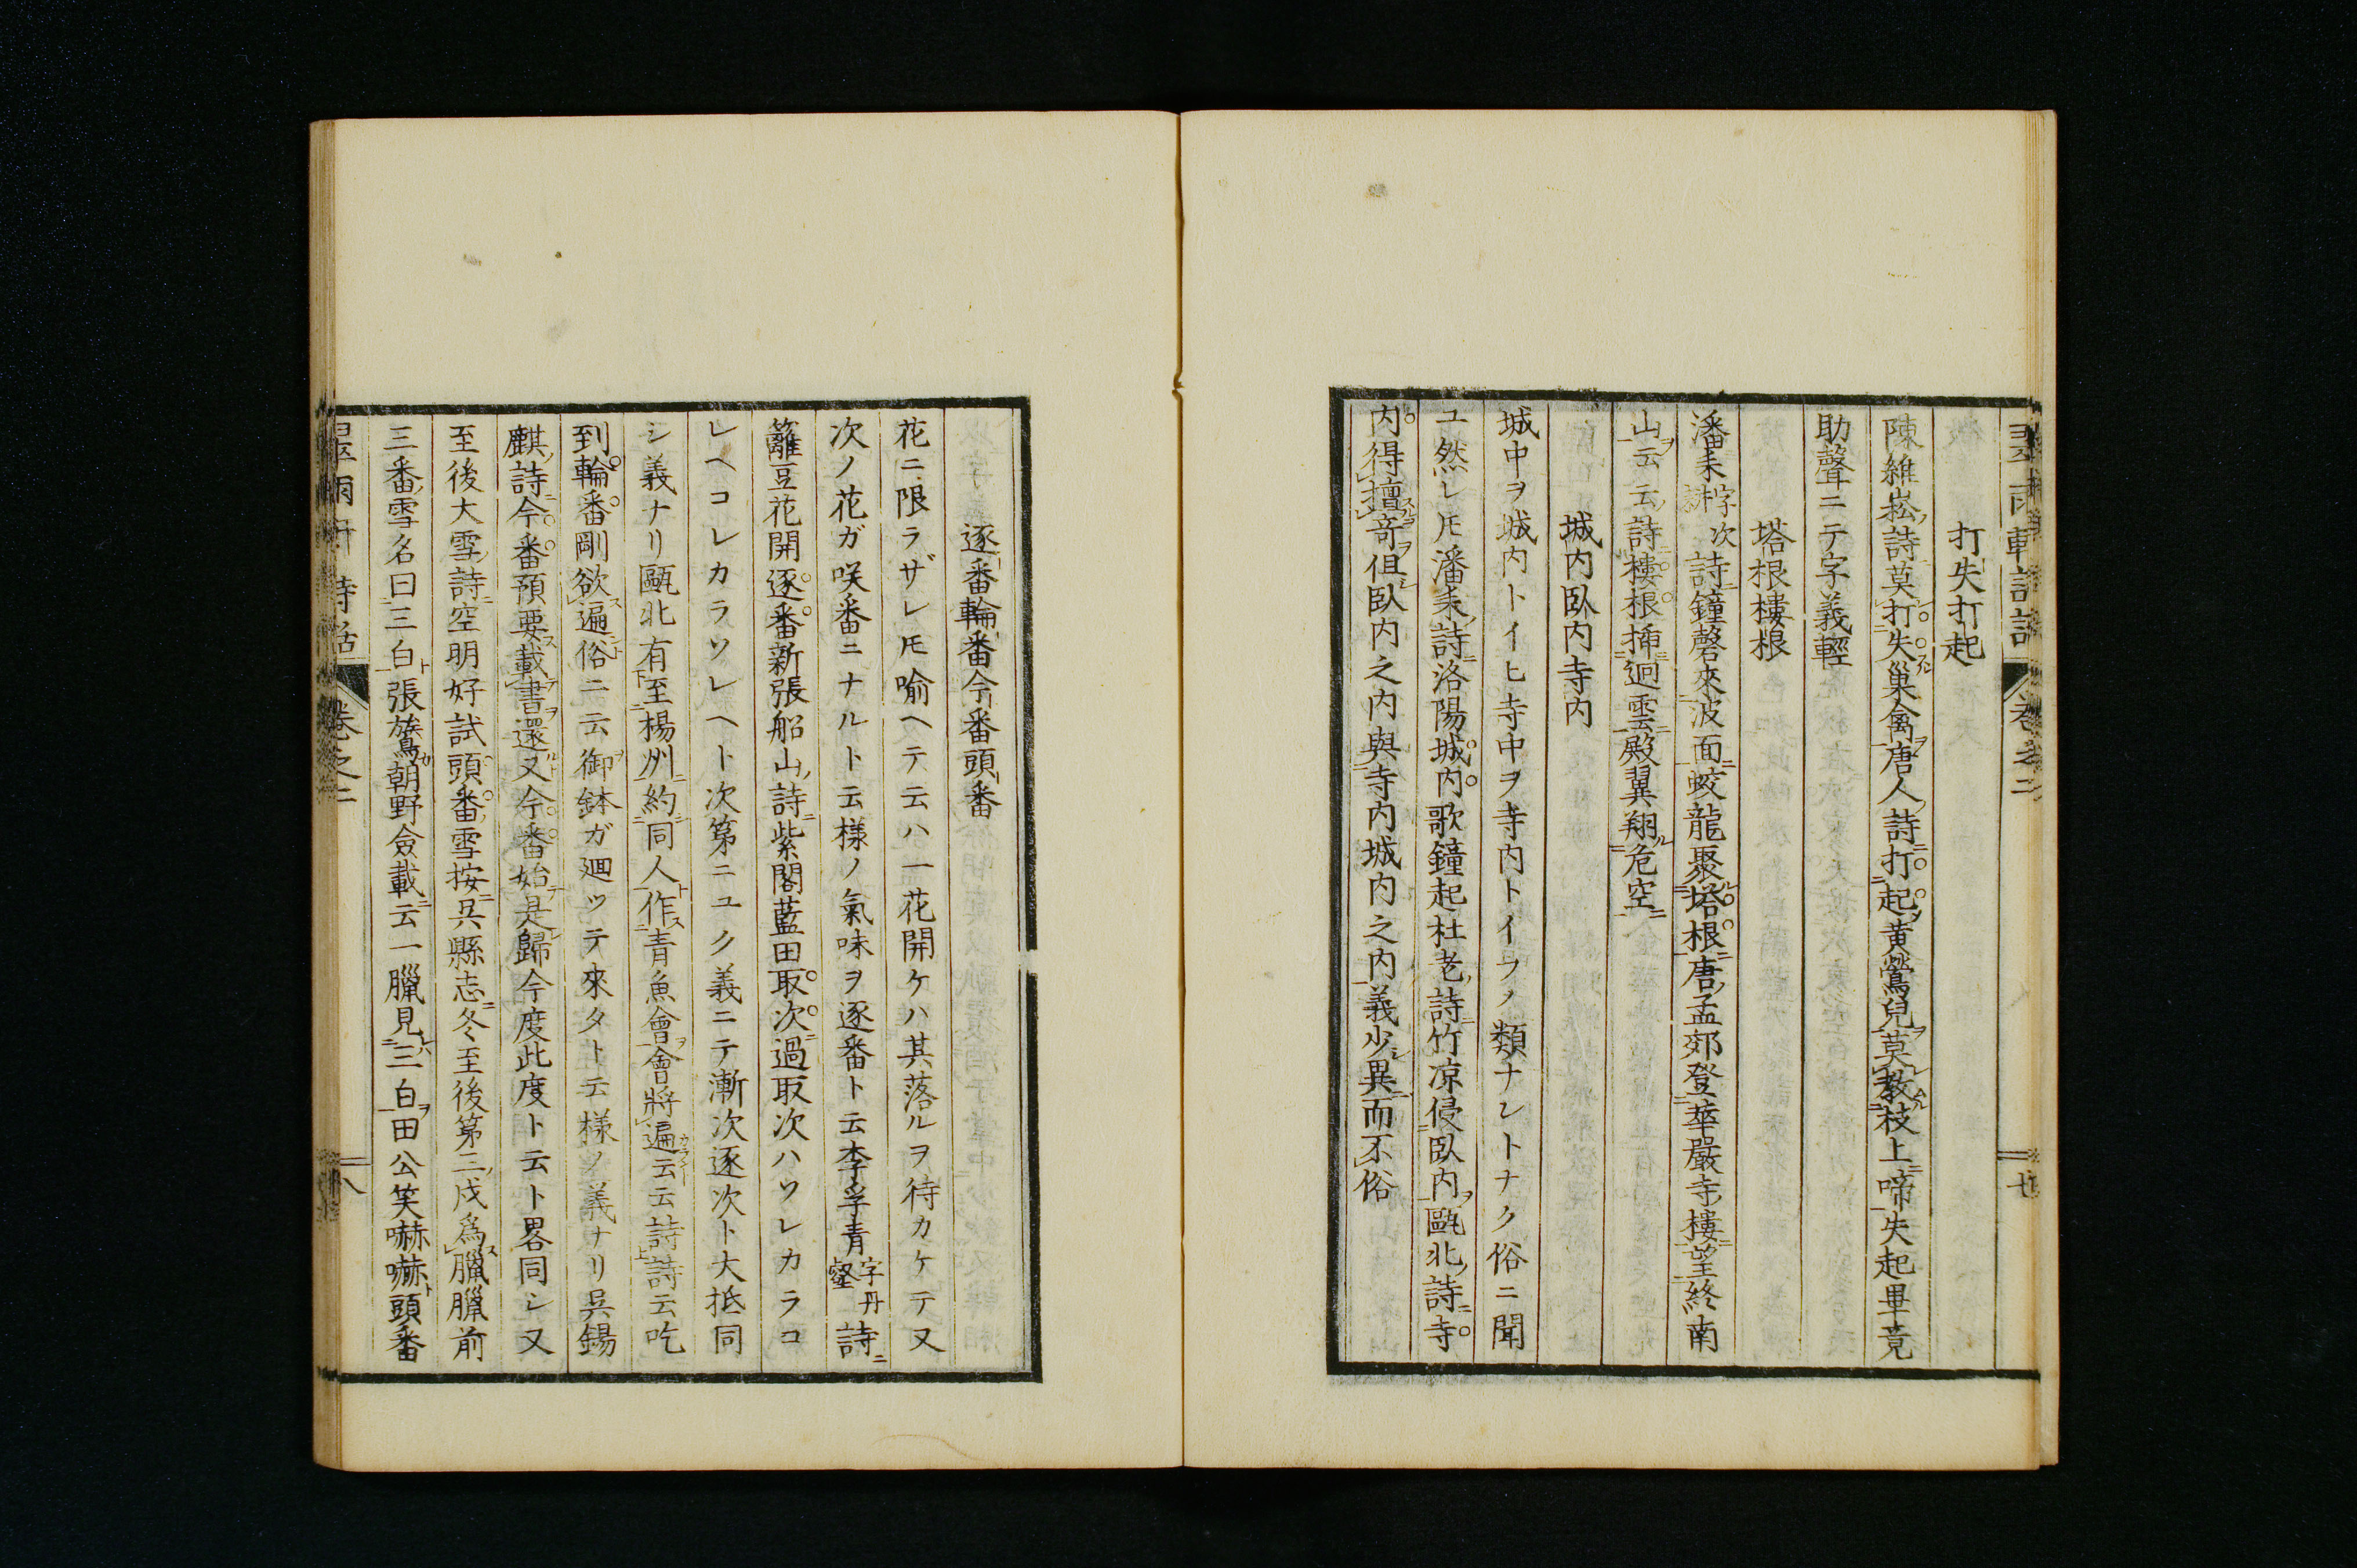 打失打起
陳維崧詩莫打失巢禽唐人詩打起黃鶯兒莫教枝上啼失起畢竟
助聲ニテ字義輕
塔根樓根
潘耒字次耕詩鐘磬來波面蛟龍聚塔根唐孟郊登華嚴寺樓望終南
山云云詩樓根插迥雲殿翼翔危空
城内臥内寺内
城中ヲ城内トイヒ寺中ヲ寺内トイフノ類ナントナク俗ニ聞
ユ然レ𪜈潘耒詩洛陽城内歌鐘起杜老詩竹凉侵臥内甌北詩寺
内得擅奇但臥内之内與寺内城内之内義少異而不俗
逐番輪番今番頭番
花ニ限ラザレ𪜈喻ヘテ云ハ一花開ケハ其落ルヲ待カケテ又
次ノ花ガ咲番ニナルト云樣ノ氣味ヲ逐番ト云李孚青字丹壑詩
籬豆花開逐番新張船山詩紫閣藍田取次過取次ハソレカラコ
レヘコレカラソレヘト次第ニユク義ニテ漸次逐次ト大抵同
シ義ナリ甌北有至楊州約同人作青魚會會將遍云云詩詩云吃
到輪番剛欲遍俗ニ云御鉢ガ廻ッテ來タト云樣ノ義ナリ吳錫
麒詩今番預要載書還又今番始是歸今度此度ト云ト畧同シ又
至後大雪詩空明好試頭番雪按吳縣志冬至後第三戌爲臘臘前
三番雪名曰三白張鷟朝野僉載云一臘見三白田公笑嚇嚇頭番
卷之二
八